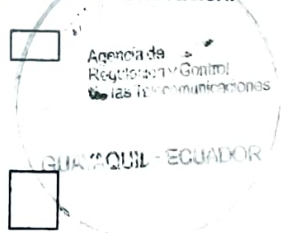 Agencia de
Regulación y Control
de las Telecomunicaciones
GUAYAQUIL - ECUADOR